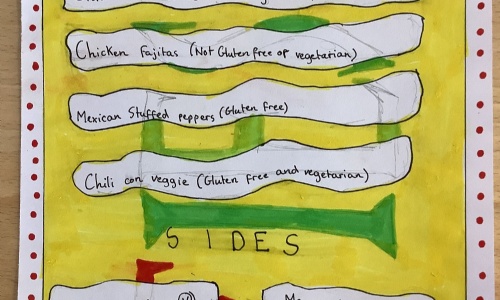 Chicken Fajitas (Not Gluten free or vegetarian)
Mexican Stuffed peppers (Gluten free)
Chili con veggie (Gluten free and vegetarian)
SIDES